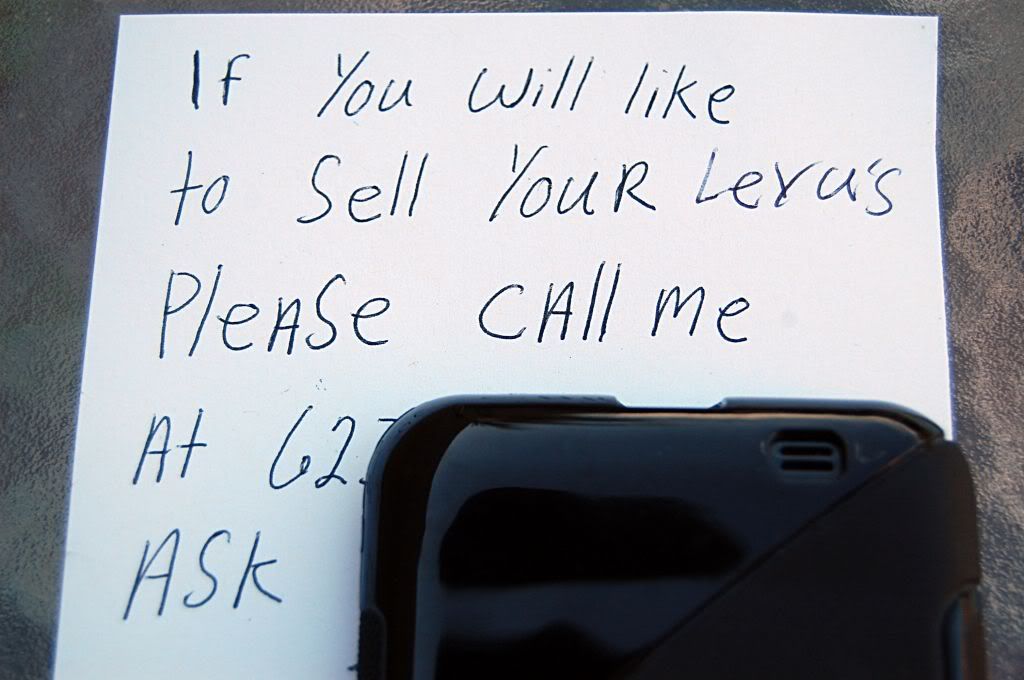 If You Will like
to Sell YouR Lexus
PleASe CAll Me
At 62
ASk